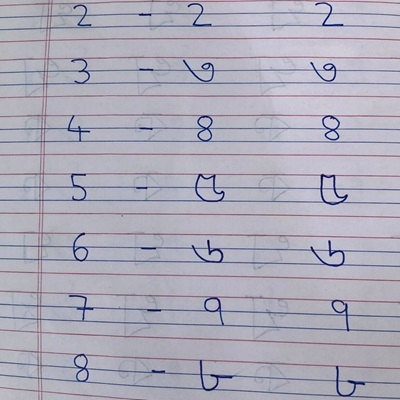 2 - ২ ২
3 - ৩ ৩
4 - ৪ ৪
5 - ৫ ৫
6 - ৬ ৬
7 - ৭ ৭
8 - ৮ ৮